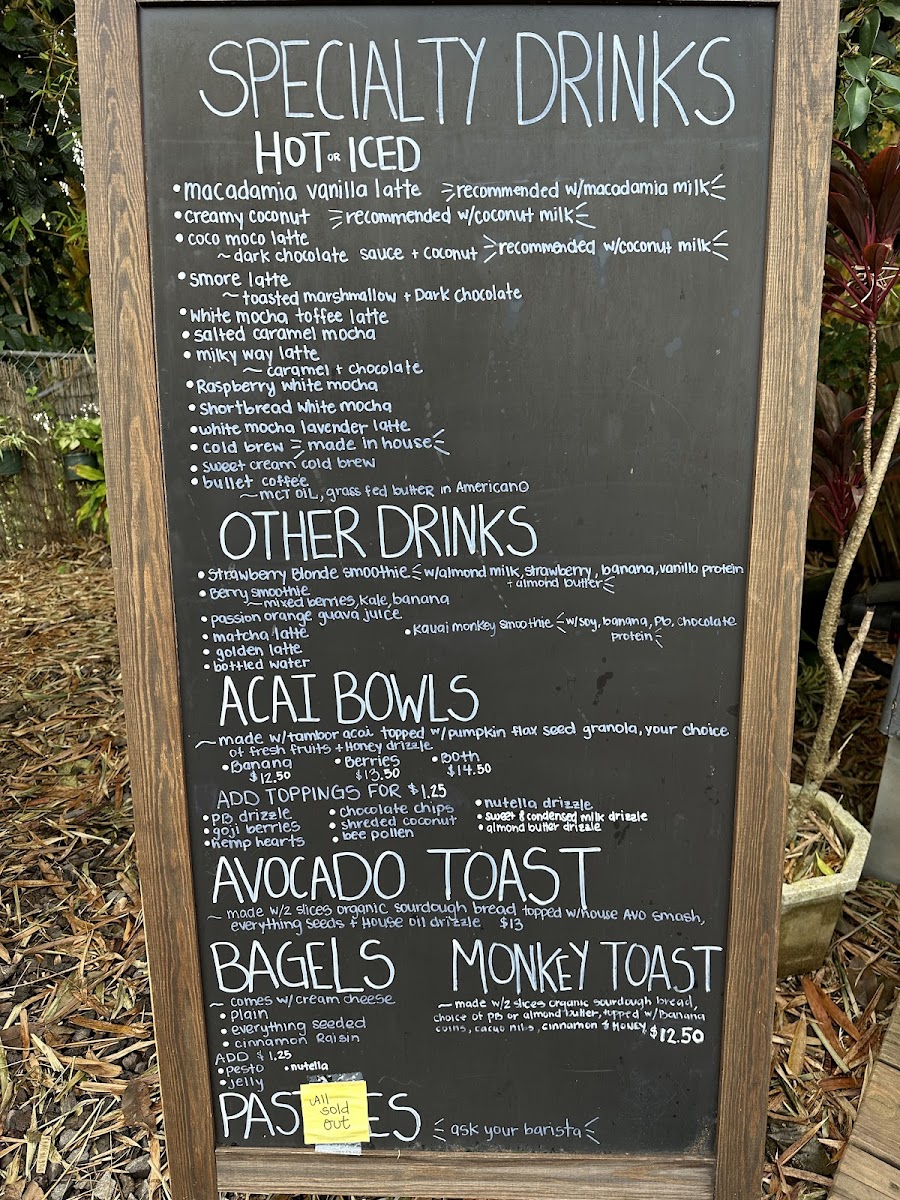 SPECIALTY DRINKS
HOT OR ICED
• macadamia vanilla latte recommended w/macadamia milk
• creamy coconut recommended w/coconut milk
• coco moco latte
~ dark chocolate sauce + coconut recommended w/coconut milk
• smore latte
~ toasted marshmallow + Dark chocolate
• white mocha toffee latte
• salted caramel mocha
• milky way latte
~ caramel + chocolate
• Raspberry white mocha
• shortbread white mocha
• white mocha lavender latte
• cold brew made in house
• sweet cream cold brew
• bullet coffee
~ MCT OIL, grass fed butter in Americano
OTHER DRINKS
• Strawberry Blonde smoothie w/almond milk, strawberry, banana, vanilla protein
+ almond butter
• Berry smoothie
~ mixed berries, kale, banana
• passion orange guava juice
• matcha latte
• Kauai monkey smoothie w/soy, banana, Pb, chocolate
protein
• golden latte
• bottled water
ACAI BOWLS
~ made w/tambor acai topped w/pumpkin flax seed granola, your choice
of fresh fruits + Honey drizzle
• Banana • Berries • Both
$12.50 $13.50 $14.50
ADD TOPPINGS FOR $1.25
• PB drizzle • chocolate chips • nutella drizzle
• goji berries • shreded coconut • sweet & condensed milk drizzle
• hemp hearts • bee pollen • almond butter drizzle
AVOCADO TOAST
~ made w/2 slices organic sourdough bread topped w/house AVO smash,
everything seeds + House oil drizzle $13
BAGELS
~ comes w/cream cheese
• plain
• everything seeded
• cinnamon Raisin
ADD $1.25
• pesto • nutella
• jelly
MONKEY TOAST
~ made w/2 slices organic sourdough bread,
choice of PB or almond butter, topped w/banana
coins, cacao nibs, cinnamon & HONEY $12.50
PAS ES ask your barista
All
sold
out